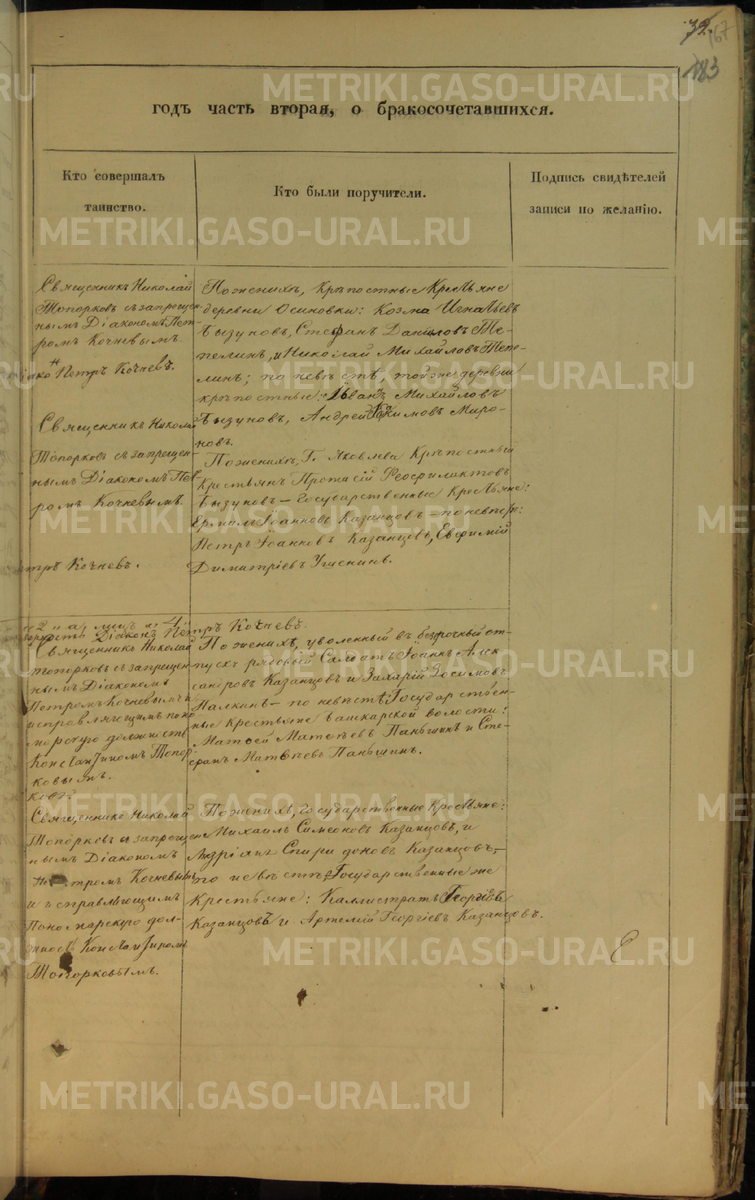 32
167
183
годъ часть вторая, о бракосочетавшихся.
Кто совершалъ
таинство.
Кто были поручители.
Подпись свидѣтелей
записи по желанію.
Священникъ Николай
Топорковъ съ запрещен-
нымъ Діакономъ Пет-
ромъ Кочневымъ.
Петръ Кочневъ.
По женихѣ, крѣпостные Крестьяне
деревни Осиновки: Козма Игнатьевъ
Бызуновъ, Стефанъ Даниловъ Те-
пелинъ, и Николай Михайловъ Тепе-
линъ; по невѣстѣ, тойже деревни
крѣпостные: Иванъ Михайловъ
Бызуновъ, Андрей Миро-
новъ.
Священникъ Николай
Топорковъ съ запрещен-
нымъ Діакономъ Пет-
ромъ Кочневымъ.
Петръ Кочневъ.
По женихѣ, Г. Яковлева Крѣпостный
Крестьянъ Протасій Феофилактовъ
Бызуновъ — Государственные Крестьяне:
Ермолъ Іоанновъ Казанцовъ — по невѣстѣ:
Петръ Іоанновъ Казанцовъ, Евфимій
Димитріевъ Ушенинъ.
Діаконъ Петръ Кочневъ.
Священникъ Николай
Топорковъ съ запрещен-
нымъ Діакономъ
Петромъ Кочневымъ и
исправляющимъ поно-
марскую должность
Константиномъ Топор-
ковымъ.
По женихѣ, уволенный въ безсрочный от-
пускъ рядовый Солдатъ Іоаннъ Алек-
сандровъ Казанцовъ и Захарій Зосимовъ
Палкинъ — по невѣстѣ: Государствен-
ные крестьяне Башкарской волости:
Матвей Матвеевъ Паньшинъ и Сте-
фанъ Матвеевъ Паньшинъ.
Священникъ Николай
Топорковъ съ запрещен-
нымъ Діакономъ
Петромъ Кочневымъ
и исправляющимъ
Пономарскую дол-
жность Константиномъ
Топорковымъ.
По женихѣ, Государственные Крестьяне:
Михаилъ Симеоновъ Казанцовъ, и
Андріянъ Спиридоновъ Казанцовъ, —
по невѣстѣ Государственные же
Крестьяне: Каллистратъ Георгіевъ
Казанцовъ и Артемій Георгіевъ Казанцовъ.
METRIKI.GASO-URAL.RU